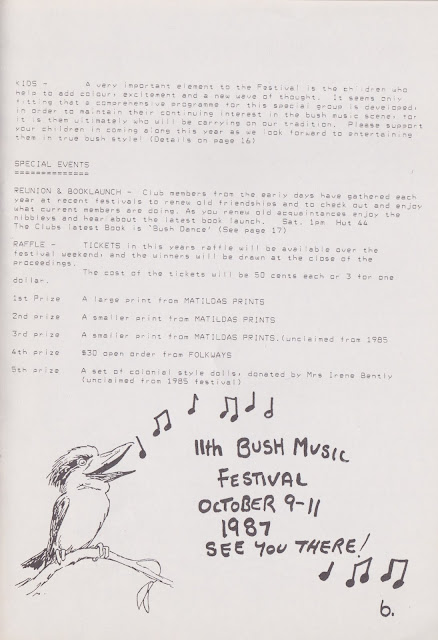 KIDS - A very important element to the Festival is the children who
help to add colour, excitement and a new wave of thought. It seems only
fitting that a comprehensive programme for this special group is developed,
in order to maintain their continuing interest in the bush music scene, for
it is them ultimately who will be carrying on our tradition. Please support
your children in coming along this year as we look forward to entertaining
them in true bush style! (Details on page 16)
SPECIAL EVENTS
==============
REUNION & BOOKLAUNCH - Club members from the early days have gathered each
year at recent festivals to renew old friendships and to check out and enjoy
what current members are doing. As you renew old acquaintances enjoy the
nibbleys and hear about the latest book launch. Sat. 1pm Hut 44
The Clubs latest Book is 'Bush Dance' (See page 17)
RAFFLE - TICKETS in this years raffle will be available over the
festival weekend, and the winners will be drawn at the close of the
proceedings.
The cost of the tickets will be 50 cents each or 3 for one
dollar.
1st Prize A large print from MATILDAS PRINTS
2nd prize A smaller print from MATILDAS PRINTS
3rd prize A smaller print from MATILDAS PRINTS.(unclaimed from 1985
4th prize $30 open order from FOLKWAYS
5th prize A set of colonial style dolls, donated by Mrs Irene Bently
(unclaimed from 1985 festival)
11th BUSH MUSIC
FESTIVAL
OCTOBER 9-11
1987
SEE YOU THERE!
6.